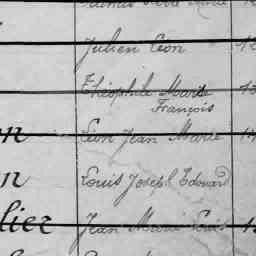 Julien Léon
Théophile Marie
François
on Léon Jean Marie
n Louis Joseph Edouard
lier Jean Marie Louis